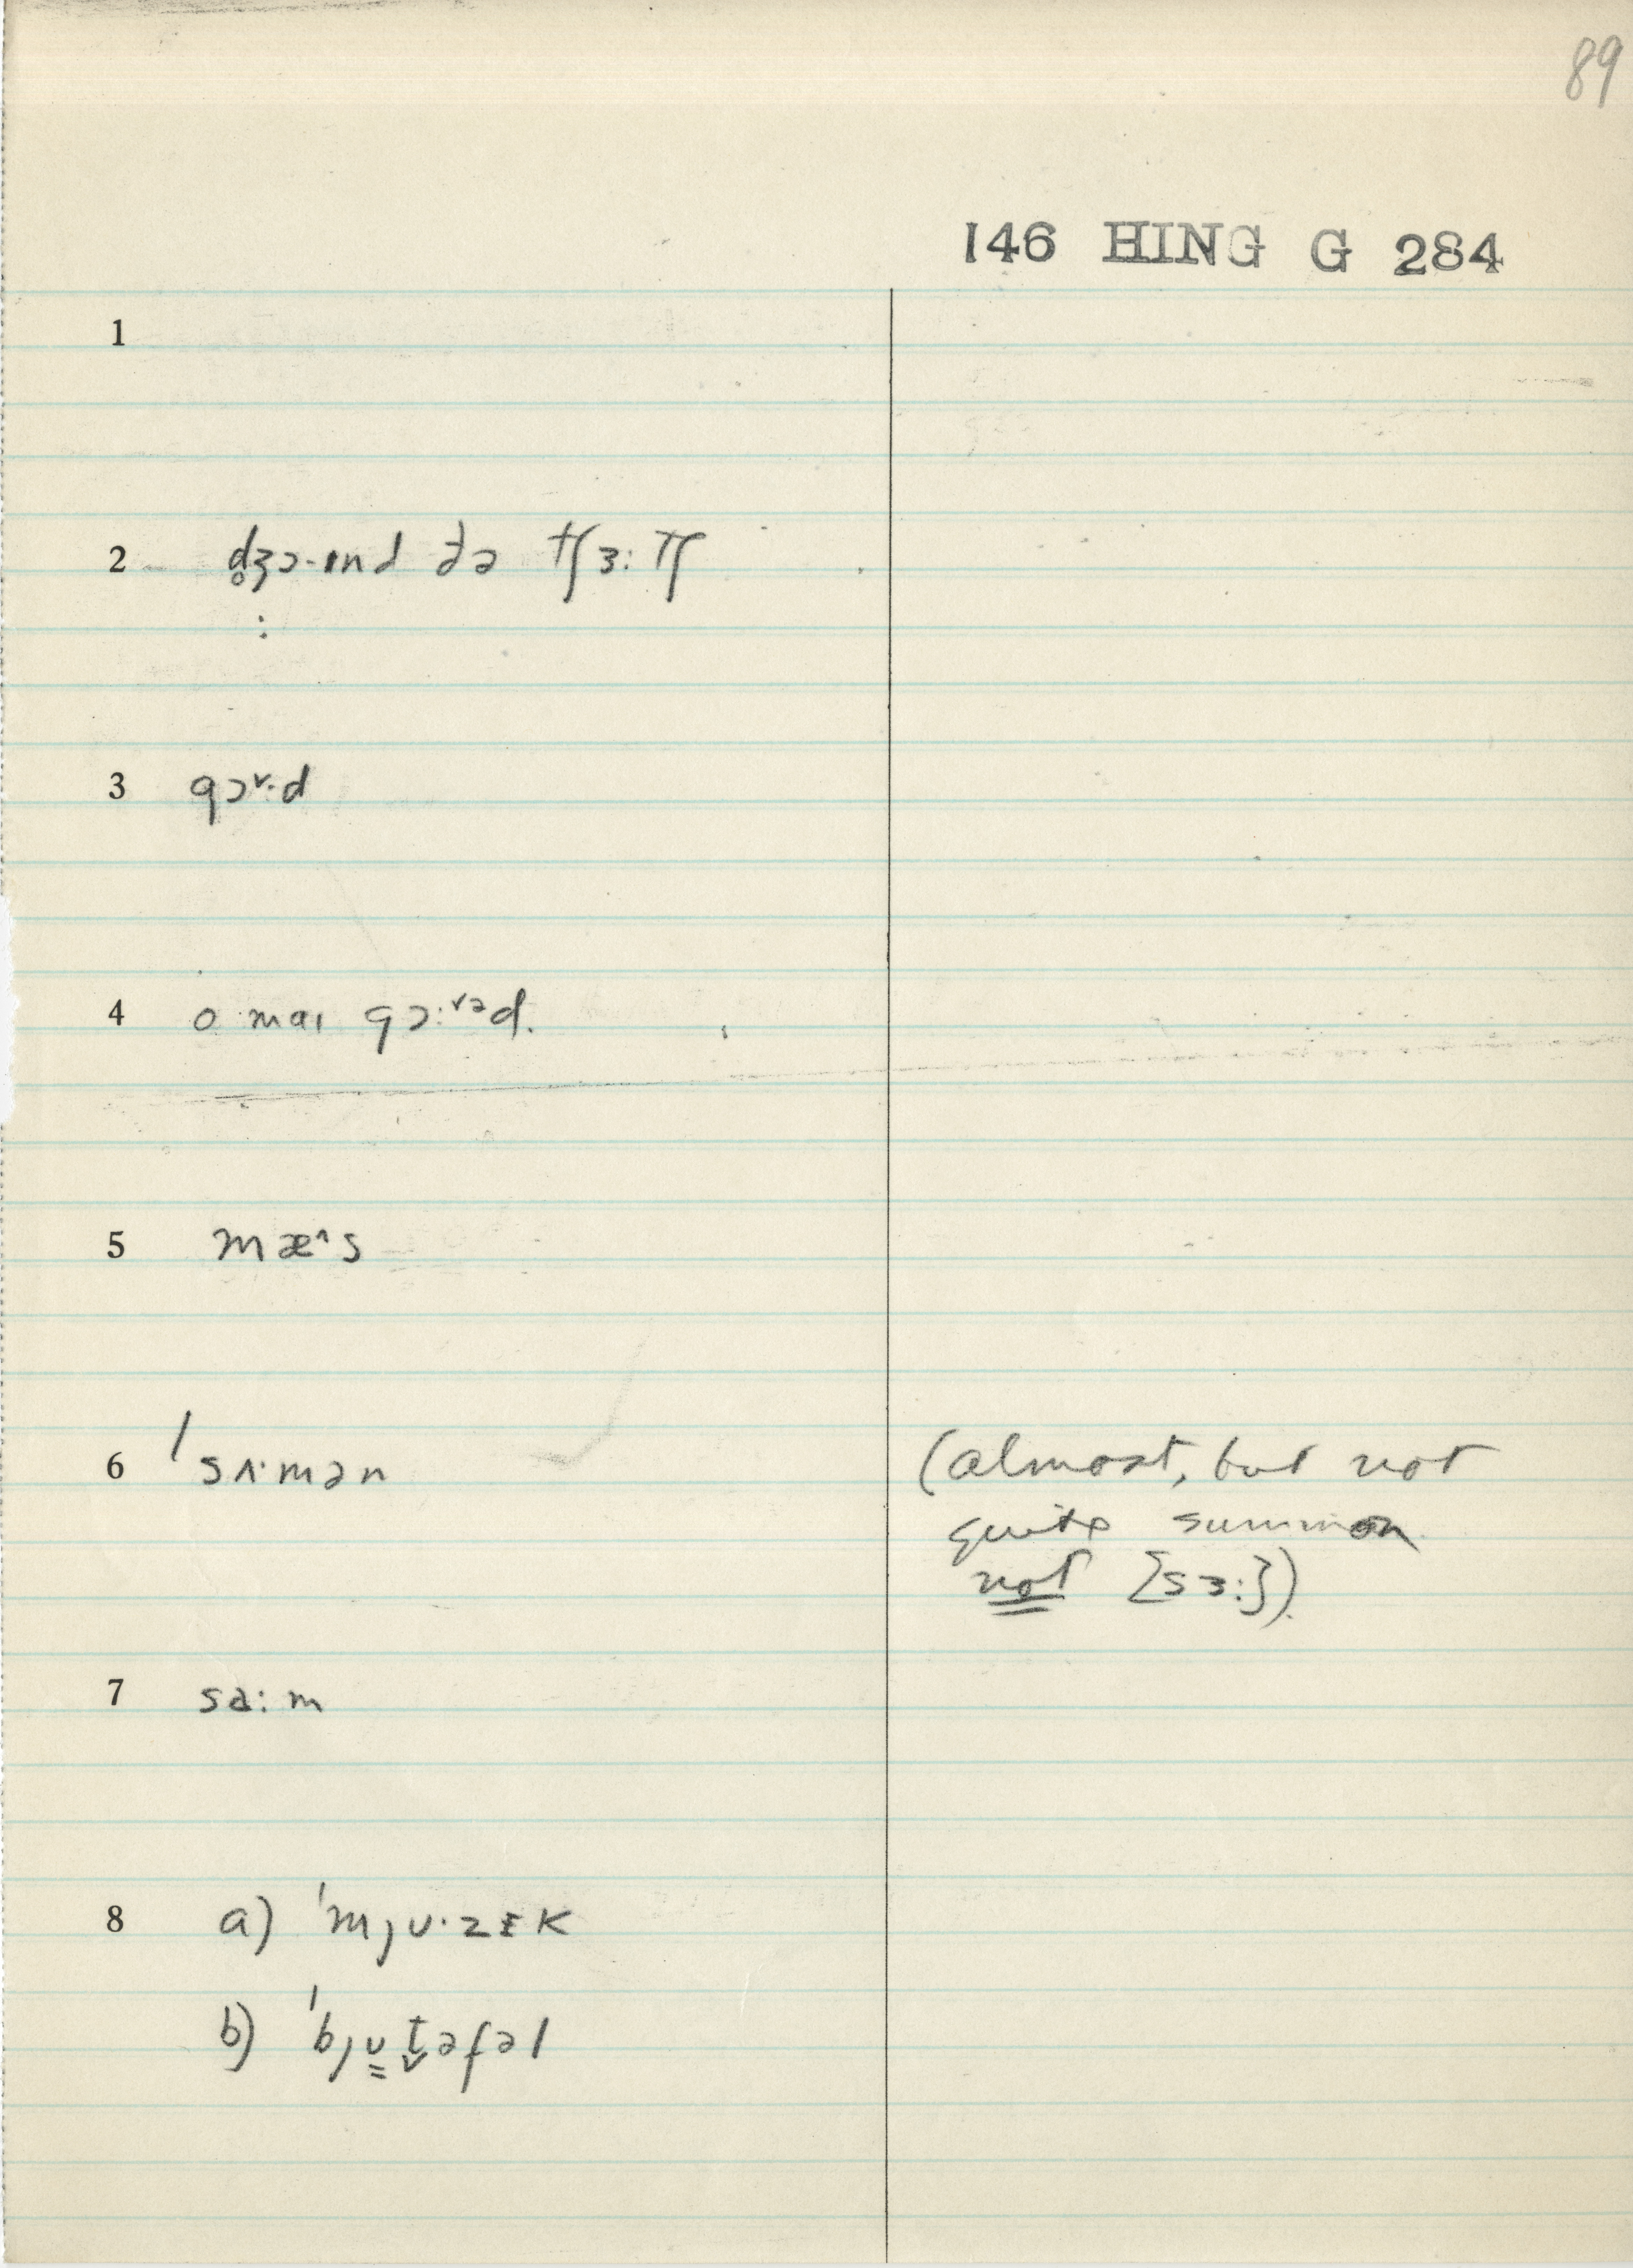 89
146 HING G 284
1
2 d̥ʒɔ·ɪnd ðə tʃɜ: tʃ
:
3 gɔ˅·d
4 o maɪ gɔ:˅əd.
5 mæ^s
6 'sʌ·mən (almost, but not
quite summon
not [sɜ:])
7 sa:m
8 a) 'mȷu·zɪk
b) 'bȷu̳t̬əfəl